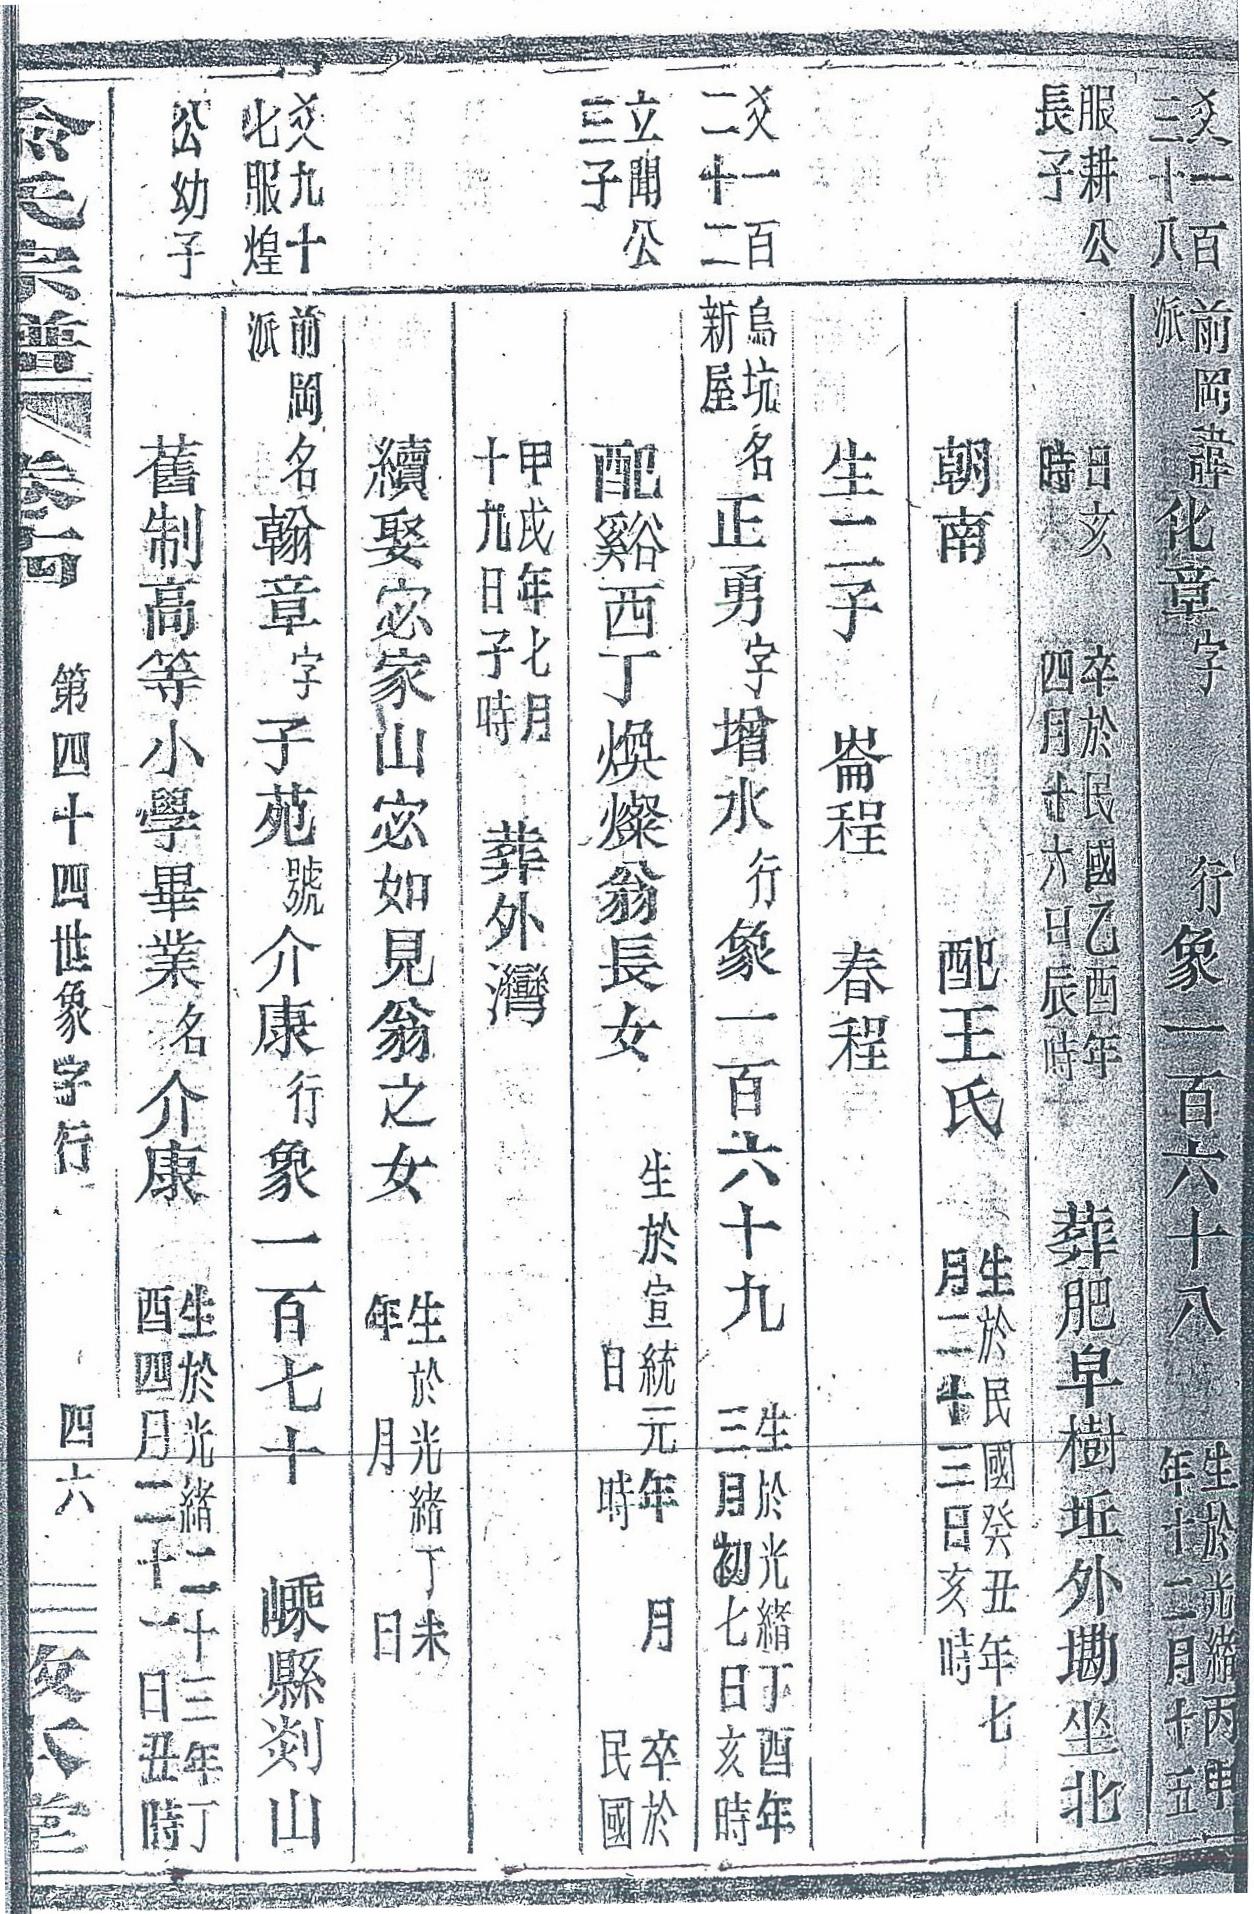 爻一百三十八服耕公長子
前岡派諱化章字 行象一百六十八 生於光緒丙申年十二月十五
日亥時 卒於民國乙酉年四月廿六日辰時 葬肥皁樹坵外墈坐北
朝南 配王氏 生於民國癸丑年七月二十三日亥時
生二子 崙程 春程
爻一百二十二立聞公三子
烏坑新屋名正勇字增水行象一百六十九 生於光緒丁酉年三月初七日亥時
配谿西丁煥燦翁長女 生於宣統元年 月 日 時 卒於民國
甲戌年七月十九日子時 葬外灣
續娶宓家山宓如見翁之女 生於光緒丁未年 月 日
爻九十七服煌公幼子
前岡派名翰章字子苑號介康行象一百七十 嵊縣剡山
舊制高等小學畢業名介康 生於光緒二十三年丁酉四月二十一日丑時
俞氏宗譜 卷 第四十四世象字行 四六